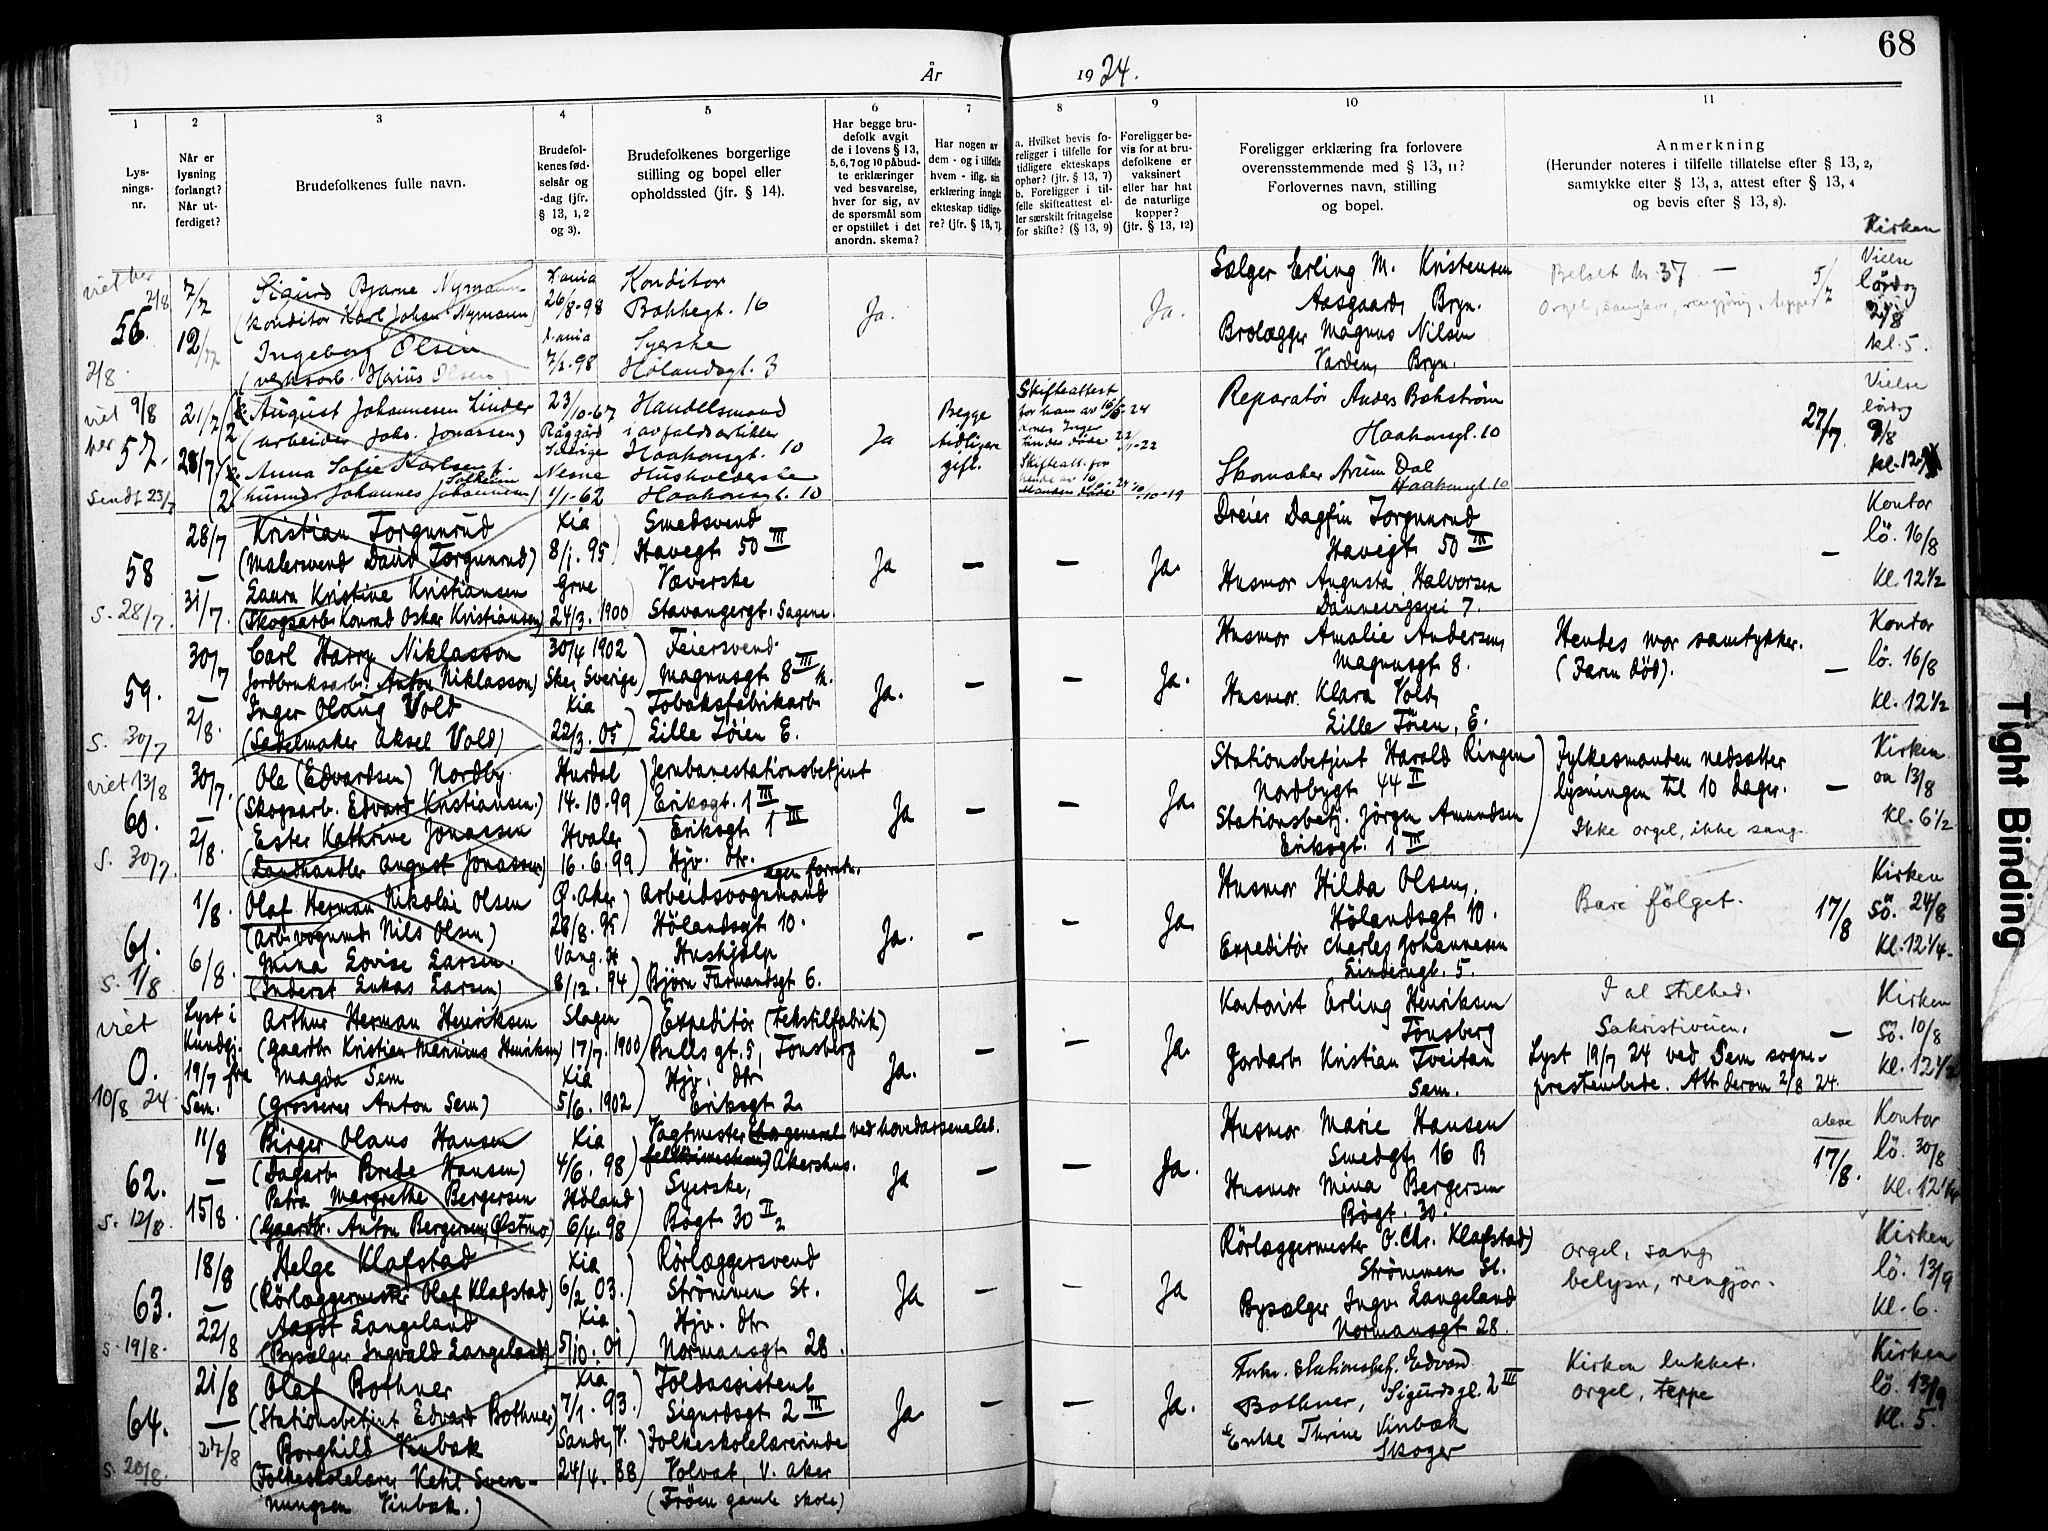 68
År 1924.
1 2 3 4 5 6 7 8 9 10 11
Lysningsnr.
Når er lysning forlangt? Når utferdiget?
Brudefolkenes fulle navn.
Brudefolkenes fødselsår og -dag (jfr. § 13, 1, 2 og 3).
Brudefolkenes borgerlige stilling og bopel eller opholdssted (jfr. § 14).
Har begge brudefolk avgit de i lovens § 13, 5, 6, 7 og 10 påbudte erklæringer ved besvarelse, hver for sig, av de spørsmål som er opstillet i det anordn. skema?
Har nogen av dem - og i tilfelle hvem - iflg. sin erklæring inngått ekteskap tidligere? (jfr. § 13, 7).
a. Hvilket bevis foreligger i tilfelle for tidligere ekteskaps ophør? (jfr. § 13, 7)
b. Foreligger i tilfelle skifteattest eller særskilt fritagelse for skifte? (§ 13, 9)
Foreligger bevis for at brudefolkene er vaksinert eller har hat de naturlige kopper? (jfr. § 13, 12)
Foreligger erklæring fra forlovere overensstemmende med § 13, 11? Forlovernes navn, stilling og bopel.
Anmerkning
(Herunder noteres i tilfelle tillatelse efter § 13, 2, samtykke efter § 13, 3, attest efter § 13, 4 og bevis efter § 13, 8).
Kirken
viet her 2/8
56.
2/8
7/7
12/7
Sigurd Bjarne Nymann
(Konditor Karl Johan Nymann)
Ingeborg Olsen
(verksarb. Marius Olsen)
X.ania
26/8-98
X.ania
7/2-98
Konditor
Bakkegt. 16
Syerske
Hølandsgt. 3
Ja.
Ja.
Sælger Erling M. Kristensen
Aasgaard, Bryn.
Brolægger Magnus Nilsen
Varden, Bryn.
Betalt kr. 37 —
Orgel, rengjøring, teppe
5/7
Vielse
lørdag
2/8
kl. 5.
viet 9/8
her
57.
Sendt 23/7
21/7
28/7
August Johannesen Linder
(arbeider Johs. Jonassen)
Anna Sofie Karlsen f. Solheim
husmd. Johannes Johannesen
23/10-67
Råggärd
Sverige
Nesne
1/1-62
Handelsmand
i avfaldsartikler
Haakonsgt. 10
Husholderske
Haakonsgt. 10
Ja
Begge
tidligere
gift.
Skifteattest
for ham av 16/5-24
Skifteatt. for
Reparatør Anders Bakström
Haakonsgt. 10
Skomaker Arum Dal
Haakonsgt. 10
27/7.
Vielse
lørdag
9/8
kl. 12
58
S. 28/7.
28/7
—
31/7.
Kristian Torgunrud
(Malersvend David Torgunrud)
Laura Kristine Kristiansen
(Skogsarb. Konrad Oskar Kristiansen)
Kia
8/1. 95
Grue
24/3. 1900
Smedsvend
Havegt. 50 III
Væverske
Stavangergt. Sagene.
Ja
—
—
Ja.
Dreier Dagfin Torgunrud
Havegt. 50 III
Husmor Augusta Halvorsen
Dannevigsvei 7.
—
Kontor
lö. 16/8
Kl. 12 1/2
59.
S. 30/7
30/7
—
2/8.
Carl Harry Niklasson
Jordbruksarb. Anton Niklasson)
Inger Olaug Vold
(Sadelmaker Aksel Vold)
30/4 1902
Skee, Sverige
Kia
22/3. 05
Feiersvend.
Magnusgt. 8 III
Tobaksfabrikarb.
Lille Tøien E.
Ja.
—
—
Ja.
Husmor Amalie Andersen,
Magnusgt. 8.
Husmor Klara Vold,
Lille Tøien, E.
Hendes mor samtykker.
(Faren död).
—
Kontor
lö. 16/8
Kl. 12 1/2
viet 13/8
60.
S. 30/7.
30/7.
—
2/8.
Ole (Edvardsen) Nordby
(Skogsarb. Edvard Kristiansen.)
Ester Kathrine Jonassen
(Landhandler August Jonassen)
Hurdal
14.10.99
Hvaler
16.6.99
Jernbanestationsbetjent
Eriksgt. 1 III
Eriksgt. 1 III
Hjv. dtr.
Ja
—
—
Ja.
Stationsbetjent Harald Ringen
Nordbygt. 44 II
Stationsbetj. Jørgen Amundsen
Eriksgt. 1 III
Fylkesmanden nedsætter
lysningen til 10 dager.
Ikke orgel, ikke sang.
—
Kirken
on 13/8
Kl. 6 1/2
61.
S. 1/8
1/8.
6/8.
Olaf Herman Nikolai Olsen
(Arb.vognmd. Nils Olsen)
Mina Lovise Larsen.
(Inderst Lukas Larsen)
Ø. Aker
26/8. 95
Vang. H
8/12. 94
egen forretn.
Arbeidsvognmand
Hölandsgt. 10.
Hushjælp
Bjørn Farmandsgt. 6.
Ja.
—
—
Ja.
Husmor Hilda Olsen,
Hölandsgt. 10.
Expeditör Charles Johannesen
Linderngt. 5.
Bare fölget.
17/8
Kirken
Sö. 24/8
Kl. 12 1/4.
viet
0.
10/8 24.
Lyst i
Kundgj.
19/7 fra
Sem.
Arthur Herman Henriksen
(Gaardbr. Kristian Marinius Henriksen)
Magda Sem
(Grosserer Anton Sem)
Slagen
17/7. 1900
Kia
5/6. 1902
Expeditör (Tekstilfabrik)
Bullsgt. 5, Tönsberg
Hjv. dtr
Eriksgt. 2
Ja.
—
—
Ja.
Kontorist Erling Henriksen
Tönsberg
Gardarb. Kristian Tveitan
Sem.
I al stilhed.
Sakristiveien.
Lyst 19/7 24 ved Sem sogne-
prestembede. Att. derom 2/8 24.
—
Kirken
Sö. 10/8
Kl. 12 1/2
62.
S. 12/8.
11/8
—
15/8.
Birger Olaus Hansen
(Dagarb. Brede Hansen)
Petra Margrethe Bergersen
(Gaardbr. Anton Bergersen, Østmo)
Kia
4/6. 98
Höland
6/4. 98
Vagtmester ved hovedarsenalet.
Akershus.
Syerske,
Bøgt. 30 II 2
Ja
—
—
Ja.
Husmor Marie Hansen
Smedgt. 16 B
Husmor Mina Bergersen
Bøgt. 30.
alene
17/8.
Kontor
lö. 30/8
Kl. 12 1/4
63.
S. 19/8.
18/8
—
22/8
Helge Klafstad
(Rörlæggermester Olaf Klafstad)
Aagot Langeland
(Bysælger Ingvald Langeland)
Kia
6/2 03.
Kia.
5/10. 01
Rörlæggersvend
Strömmen St.
Hjv. dtr
Normansgt. 28.
Ja
—
—
Ja
Rörlæggermester O. Chr. Klafstad)
Strömmen St.
Bysælger Ingv. Langeland
Normansgt. 28.
orgel, sang,
belysn, rengjør.
Kirken
lö. 13/9
Kl. 6.
64.
S. 20/8.
21/8
—
27/8
Olaf Bothner
(Stationsbetjent Edvard Bothner)
Borghild Vinbæk
(Folkeskolelærer Ketil Sven-
nungsen Vinbæk.)
Kia
7/1. 93.
Sande, V.
24/4. 88
Toldassistent
Sigurdsgt. 2 III
Folkeskolelærerinde
Volvat, V. Aker
(Fröen gamle skole)
Ja.
—
—
Ja.
Stationsbet. Edvard
Bothner, Sigurdsgt. 2 III
Enke Thrine Vinbæk
Skoger
Kirken lukket.
Orgel, teppe
Kirken
lö. 13/9
Kl. 5.
Tight Binding